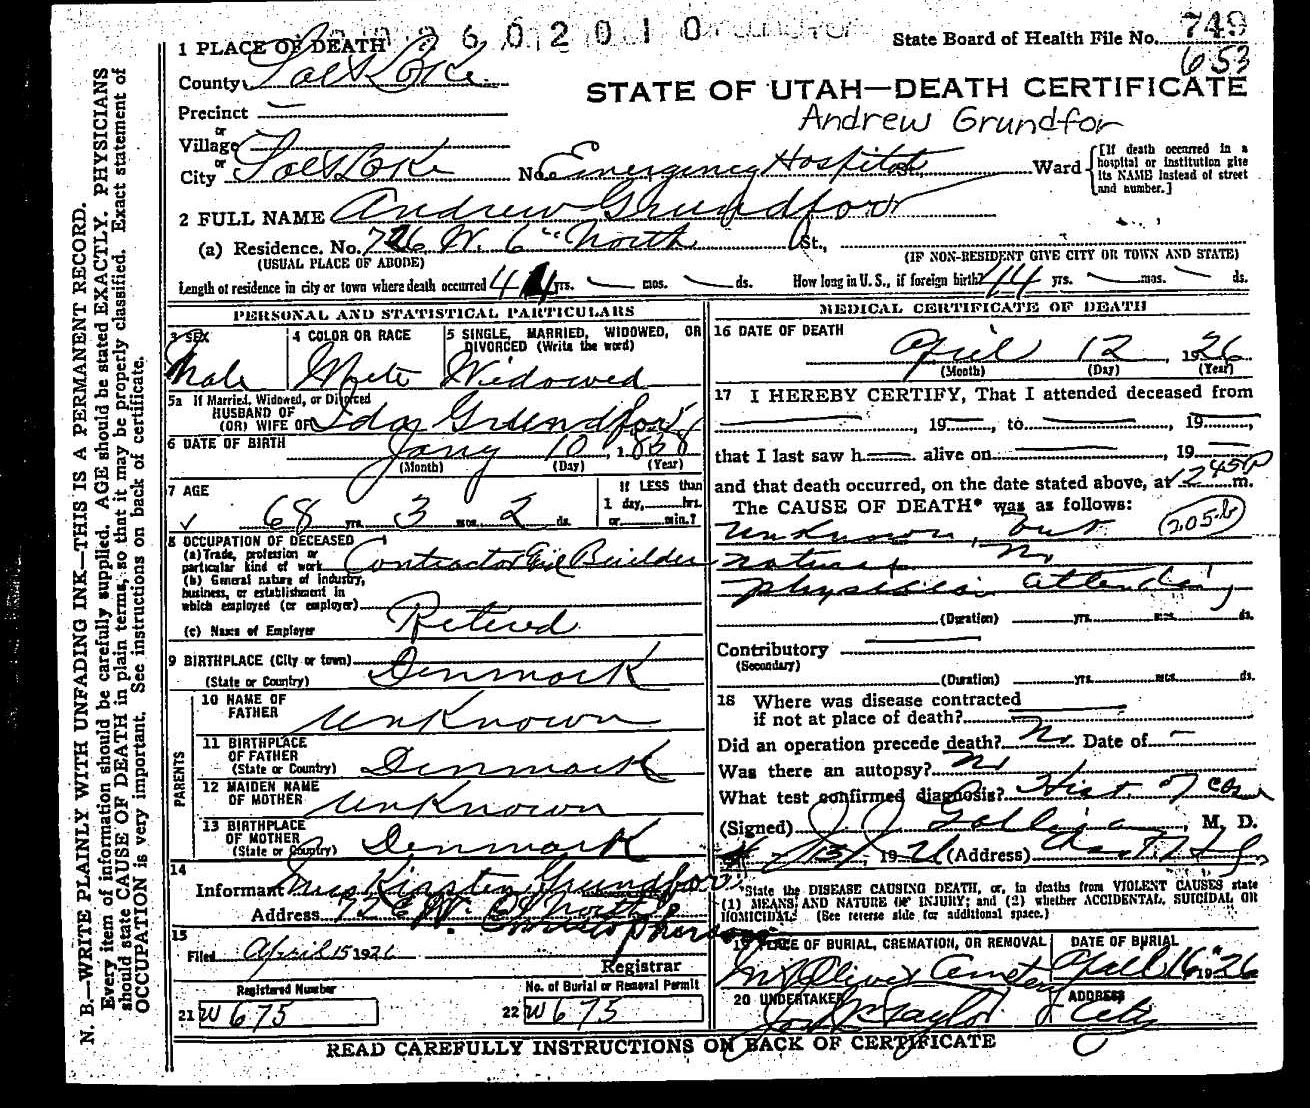 2602010
State Board of Health File No. 749
653
1 PLACE OF DEATH
County Salt Lake
STATE OF UTAH—DEATH CERTIFICATE
Andrew Grundfor
Precinct —
or
Village
or
City Salt Lake No. Emergency Hospital St., Ward
[If death occurred in a
hospital or institution give
its NAME instead of street
and number.]
2 FULL NAME Andrew Grundfor
(a) Residence. No. 726 W. 6" North St.,
(USUAL PLACE OF ABODE) (IF NON-RESIDENT GIVE CITY OR TOWN AND STATE)
Length of residence in city or town where death occurred 44 yrs. — mos. — ds. How long in U. S., if foreign birth? 44 yrs. — mos. — ds.
PERSONAL AND STATISTICAL PARTICULARS
3 SEX 4 COLOR OR RACE 5 SINGLE, MARRIED, WIDOWED, OR
DIVORCED (Write the word)
Male White Widowed
5a If Married, Widowed, or Divorced
HUSBAND OF
(OR) WIFE OF Ida Grundfor
6 DATE OF BIRTH Jany 10, 1858
(Month) (Day) (Year)
7 AGE If LESS than
1 day, hrs.
✓ 68 yrs. 3 mos. 2 ds. or min.?
8 OCCUPATION OF DECEASED
(a) Trade, profession or
particular kind of work Contractor Builder
(b) General nature of industry,
business, or establishment in
which employed (or employer)
(c) Name of Employer Retired
9 BIRTHPLACE (City or town)
(State or Country) Denmark
PARENTS
10 NAME OF
FATHER Unknown
11 BIRTHPLACE
OF FATHER
(State or Country) Denmark
12 MAIDEN NAME
OF MOTHER Unknown
13 BIRTHPLACE
OF MOTHER
(State or Country) Denmark
14
Informant Mrs Kirsten Grundfor
Address 726 W. 6" North
15
Filed April 15 1926
Registrar
Registered Number No. of Burial or Removal Permit
21 W 675 22 W 675
MEDICAL CERTIFICATE OF DEATH
16 DATE OF DEATH
April 12, 1926
(Month) (Day) (Year)
17 I HEREBY CERTIFY, That I attended deceased from
—, 19—, to —, 19—,
that I last saw h— alive on —, 19—
and that death occurred, on the date stated above, at 1245P m.
The CAUSE OF DEATH* was as follows:
Unknown, but 205-b
natural No
physician attending
(Duration) yrs. mos. ds.
Contributory —
(Secondary)
(Duration) yrs. mos. ds.
18 Where was disease contracted
if not at place of death? —
Did an operation precede death? No Date of —
Was there an autopsy? No
What test confirmed diagnosis? Hist. of case
(Signed) J. J. Galligan, M. D.
4/13/, 1926 (Address)
*State the DISEASE CAUSING DEATH, or, in deaths from VIOLENT CAUSES state
(1) MEANS AND NATURE OF INJURY; and (2) whether ACCIDENTAL, SUICIDAL OR
HOMICIDAL. (See reverse side for additional space.)
19 PLACE OF BURIAL, CREMATION, OR REMOVAL DATE OF BURIAL
Mt Olivet Cemetery April 16" 1926
20 UNDERTAKER ADDRESS
Taylor City
READ CAREFULLY INSTRUCTIONS ON BACK OF CERTIFICATE
N. B.—WRITE PLAINLY WITH UNFADING INK—THIS IS A PERMANENT RECORD.
Every item of information should be carefully supplied. AGE should be stated EXACTLY. PHYSICIANS
should state CAUSE OF DEATH in plain terms, so that it may be properly classified. Exact statement of
OCCUPATION is very important. See instructions on back of certificate.